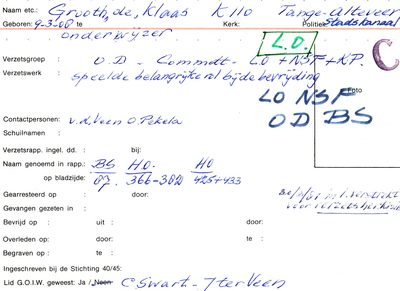 Naam etc.: Grooth, de, Klaas K 110 Tange-Alteveer
Geboren: 9-3-08 te Kerk: Politiek: Stadskanaal
onderwijzer
L.O.
C
Verzetsgroep : O.D. Commdt- LO + NSF + KP.
Verzetswerk : speelde belangrijke rol bij de bevrijding
LO NSF
Foto
OD BS
Contactpersonen: v.d. Veen O. Pekela
Schuilnamen :
Verzetsrapp. ingel. dd. : bij:
Naam genoemd in rapp.: BS HO. HO
op bladzijde: 07. 366-382 425+433
Gearresteerd op : door:
Gevangen gezeten in :
Bevrijd op : uit : door:
Overleden op: door: te :
Begraven op : te :
Ingeschreven bij de Stichting 40/45:
Lid G.O.I.W. geweest: Ja / Neen C. Swart - Iter Veen